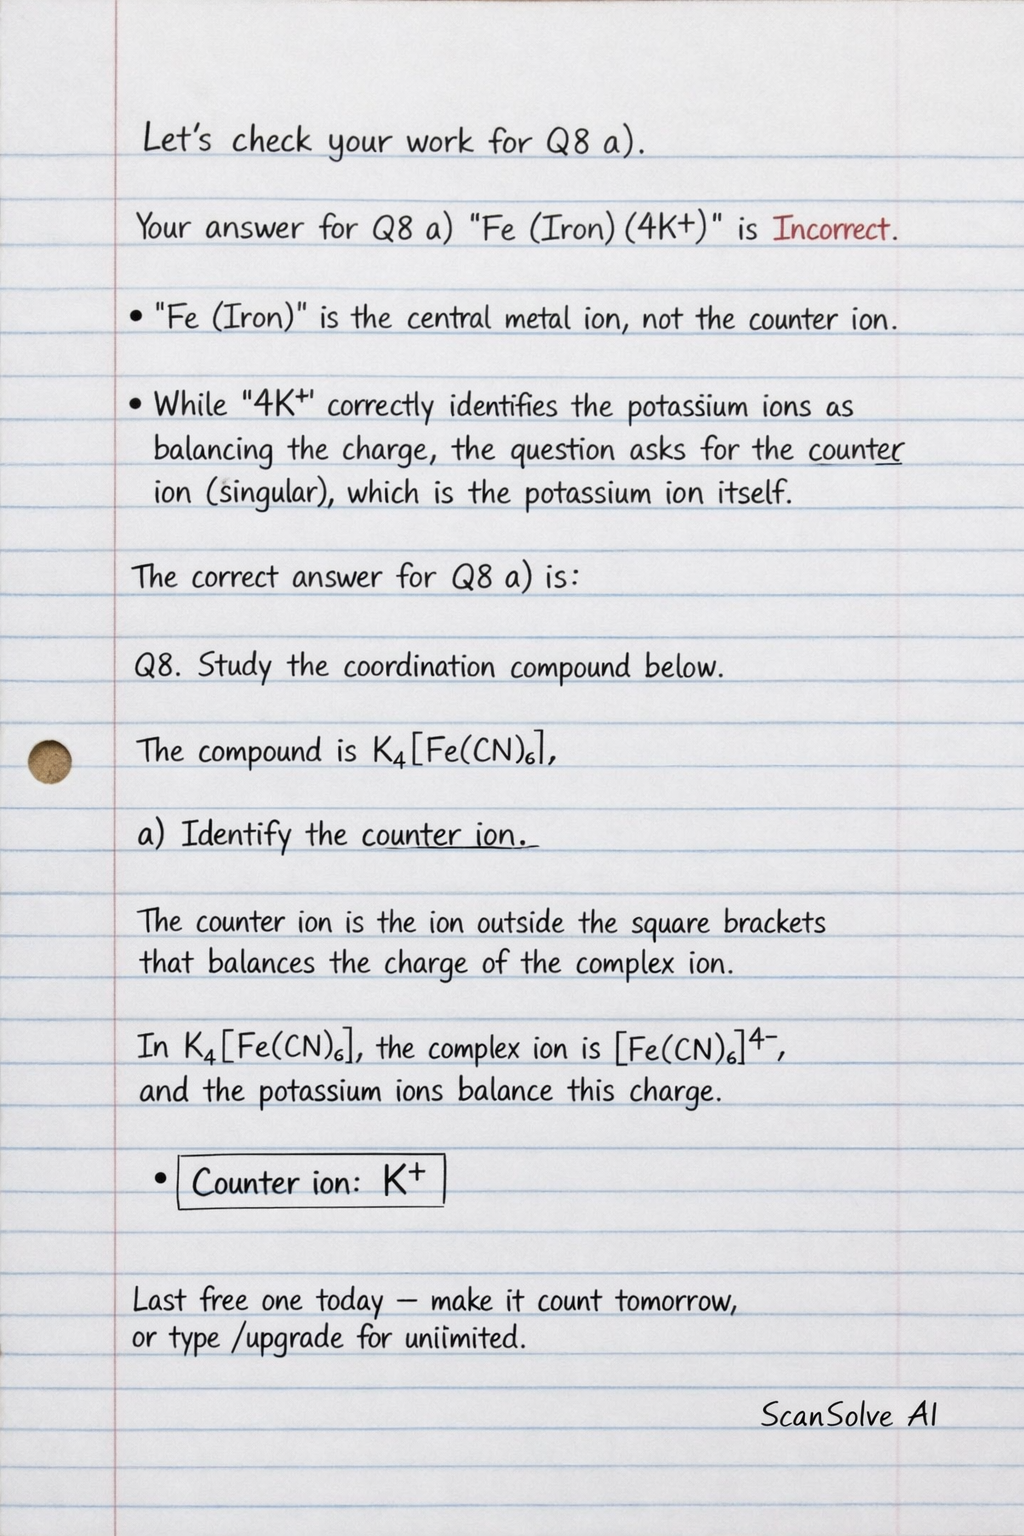 Let's check your work for Q8 a).
Your answer for Q8 a) "Fe (Iron) (4K+)" is Incorrect.
• "Fe (Iron)" is the central metal ion, not the counter ion.
• While "4K⁺" correctly identifies the potassium ions as
balancing the charge, the question asks for the counter
ion (singular), which is the potassium ion itself.
The correct answer for Q8 a) is:
Q8. Study the coordination compound below.
The compound is K₄[Fe(CN)₆],
a) Identify the counter ion.
The counter ion is the ion outside the square brackets
that balances the charge of the complex ion.
In K₄[Fe(CN)₆], the complex ion is [Fe(CN)₆]⁴⁻,
and the potassium ions balance this charge.
• Counter ion: K⁺
Last free one today – make it count tomorrow,
or type /upgrade for uniimited.
ScanSolve AI